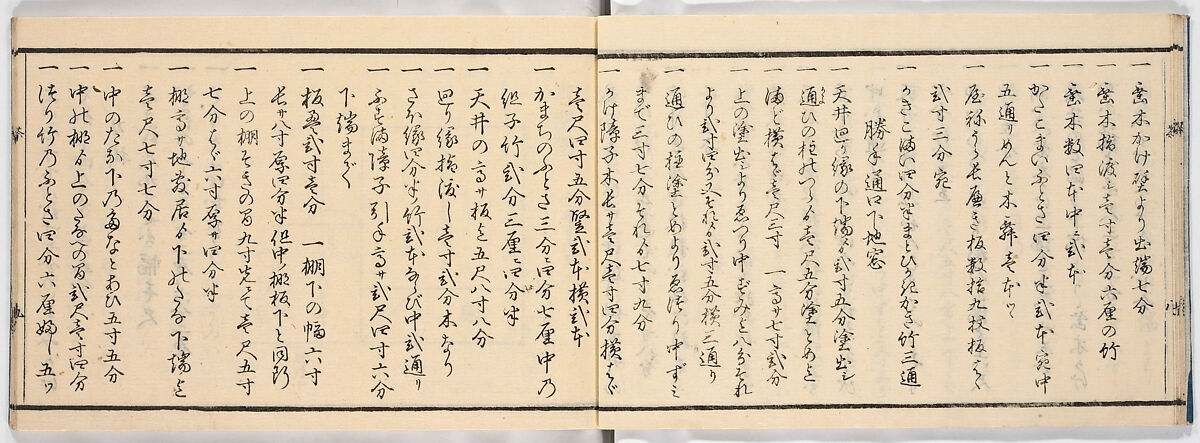 一 垂木かけ壁より出端七分
一 垂木指渡シ壱寸壱分六厘の竹
一 垂木数四本中ニ弐本
一 かさこまいふとさ四分半弐本宛中
五通りめんと木舞壱本ツヽ
一 屋祢うら長庇き板数拾九枚板はゞ
弐寸三分宛
一 かきこまい四分半まとひかきかさ竹三通
勝手通口下地窓
一 天井廻り縁の下端より弐寸五分塗出シ
一 通ひの柱のつらより壱尺五分塗とめと
一 満ど横はゞ壱尺三寸 一 高サ七寸弐分
一 上の塗出シよりゑつり中ずみと八分
より弐寸四分それより弐寸五分横ニ通り
一 通ひの柱塗とめよりゑつり中ずミ
まで三寸七分それより七寸九分
一 かけ障子木長サ壱尺壱寸四分横はゞ
壱尺四寸五分竪弐本横弐本
一 かまちのふとさ三分ニ四分七厘中の
組子竹弐分三厘ニ四分半
一 天井の高サ板迄五尺八寸八分
一 廻り縁指渡し壱寸弐分木なり
一 さほ縁四分半竹弐本ならび中弐通り
一 ふすま障子引手高サ弐尺四寸六分
下端まで
一 板厚弐寸壱分 一 棚下の幅六寸
長サ八寸厚四分半但中棚板下と同断
一 上の棚そきの間九寸先にて壱尺五寸
七分はゞ六寸厚サ四分半
一 棚高サ地敷居より下のたな下端迄
壱尺七寸七分
一 中のたな下のたなとあひ五寸五分
一 中の棚より上のたなへの間弐尺壱寸四分
一 つり竹のふとさ四分六厘ふし五ツ